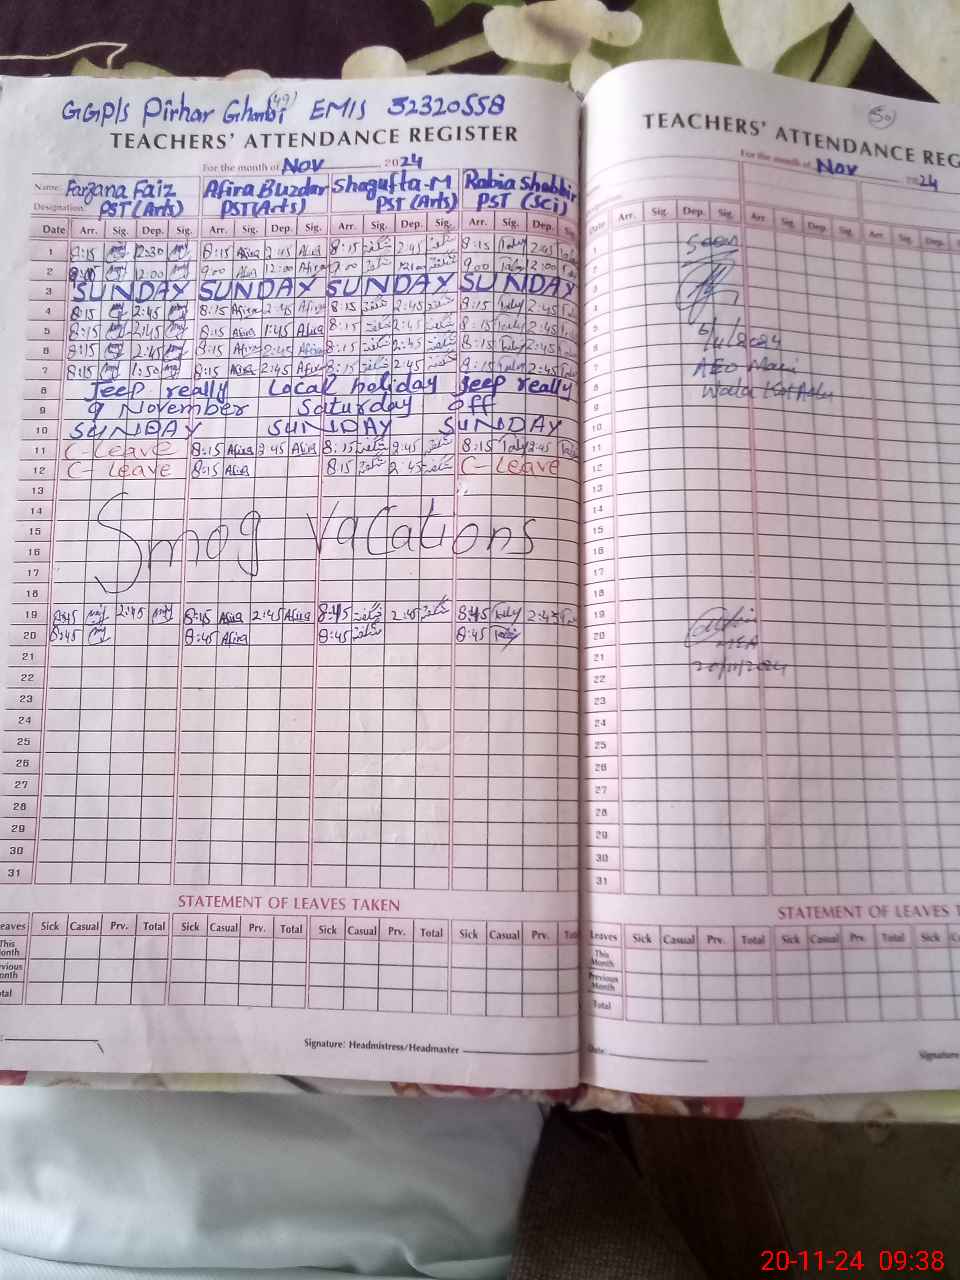 GGP/S Pirhar Gharbi (49) EMIS 32320558
TEACHERS' ATTENDANCE REGISTER
For the month of Nov 2024
Name: Farzana Faiz Afira Buzdar Shagufta-M Rabia Shabbir
Designation: PST (Arts) PST (Arts) PST (Arts) PST (Sci)
Date Arr. Sig. Dep. Sig. Arr. Sig. Dep. Sig. Arr. Sig. Dep. Sig. Arr. Sig. Dep. Sig.
1 8:15 12:30 8:15 Afira 2:45 Afira 8:15 2:45 8:15 2:45
2 12:00 9:00 Afira 12:00 Afira 9:00 12:00 9:00 12:00
3 SUNDAY SUNDAY SUNDAY SUNDAY
4 8:15 2:45 8:15 Afira 2:45 Afira 8:15 2:45 8:15 2:45
5 8:15 2:45 8:15 Afira 1:45 Afira 8:15 2:45 8:15 2:45
6 8:15 2:45 8:15 Afira 2:45 Afira 8:15 2:45 8:15 2:45
7 8:15 1:50 8:15 Afira 2:45 Afira 8:15 2:45 8:15 2:45
8 Jeep really Local holiday Jeep really
9 9 November Saturday off
10 SUNDAY SUNDAY SUNDAY
11 C-Leave 8:15 Afira 2:45 Afira 8:15 2:45 8:15 2:45
12 C-Leave 8:15 Afira 8:15 2:45 C-Leave
13
14
15 Smog vacations
16
17
18
19 8:45 2:45 8:45 Afira 2:45 Afira 8:45 2:45 8:45 2:45
20 8:45 8:45 Afira 8:45 8:45
21
22
23
24
25
26
27
28
29
30
31
STATEMENT OF LEAVES TAKEN
eaves Sick Casual Prv. Total Sick Casual Prv. Total Sick Casual Prv. Total Sick Casual Prv.
This onth
vious onth
tal
Signature: Headmistress/Headmaster
(50)
TEACHERS' ATTENDANCE REG
For the month of Nov 2024
Date Arr. Sig. Dep. Sig. Arr Sig. Dep. Sig. Arr. Sig. Dep.
1 Seen
2
3
4
5
6 6/11/2024
7 AEO
8
9
10
11
12
13
14
15
16
17
18
19
20 MEA
21 20/11/2024
22
23
24
25
26
27
28
29
30
31
STATEMENT OF LEAVES T
Leaves Sick Casual Prv. Total Sick Casual Prv. Total Sick
This Month
Previous Month
Total
Date:
Signature
20-11-24 09:38